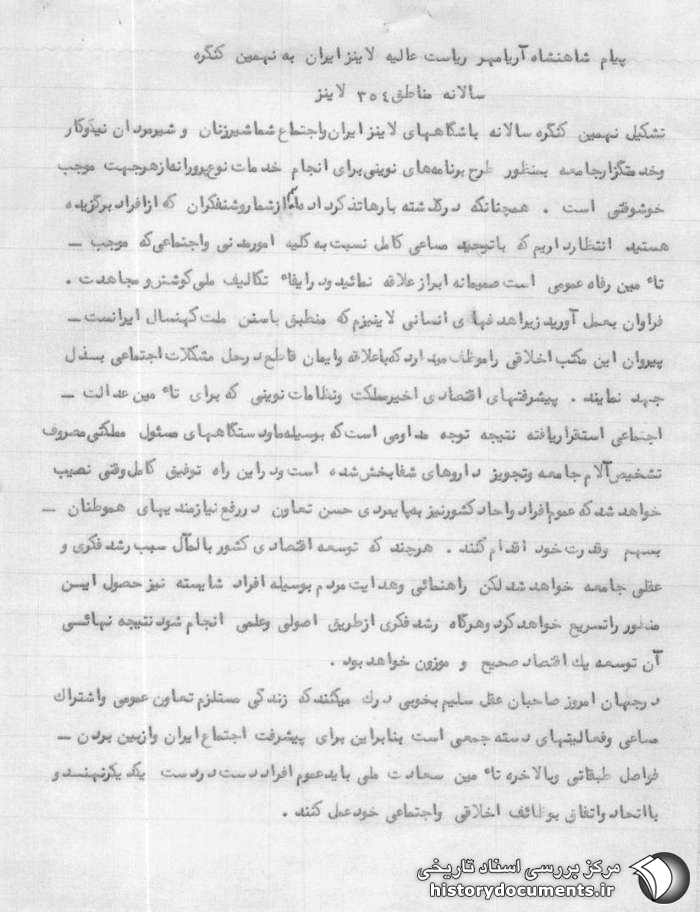 پیام شاهنشاه آریامهر ریاست عالیه لاینز ایران به نهمین کنگره
سالانه مناطق ۳۵٤ لاینز
تشکیل نهمین کنگره سالانه باشگاههای لاینز ایران واجتماع شما شیرزنان و شیرمردان نیکوکار
وخدمتگزار جامعه بمنظور طرح برنامه‌های نوینی برای انجام خدمات نوع‌پرورانه از هر جهت موجب
خوشوقتی است . همچنانکه در گذشته بارها تذکر داده‌ام از شما روشنفکران که از افراد برگزیده
هستید انتظار داریم که با توحید مساعی کامل نسبت به کلیه امور مدنی واجتماعی که موجب ـ
تاٴ مین رفاه عمومی است صمیمانه ابراز علاقه نمائید ودر ایفاٴ تکالیف ملی کوشش و مجاهدت .
فراوان بعمل آورید زیرا هدفهای انسانی لاینیزم که منطبق باسنن ملت کهنسال ایرانست ـ
پیروان این مکتب اخلاقی را موظف میدارد که باعلاقه وایمان قاطع در حل مشکلات اجتماعی بسذل
جهد نمایند . پیشرفتهای اقتصادی اخیر مملکت ونظامات نوینی که برای تاٴ مین عدالت ـ
اجتماعی استقرار یافته نتیجه توجه مداومی است که بوسیله ما ودستگاههای مسئول مملکتی مصروف
تشخیص آلام جامعه وتجویز داروهای شفابخش شده است ودر این راه توفیق کامل وقتی نصیب
خواهد شد که عموم افراد واحاد کشور نیز به پایمردی حسن تعاون در رفع نیازمندیهای هموطنان ـ
بسهم وقدرت خود اقدام کنند . هرچند که توسعه اقتصادی کشور بالمآل سبب رشد فکری و
عقلی جامعه خواهد شد لکن راهنمائی وهدایت مردم بوسیله افراد شایسته نیز حصول ایسن
منظور را تسریع خواهد کرد وهرگاه رشد فکری از طریق اصولی وعلمی انجام شود نتیجه نهائسی
آن توسعه یك اقتصاد صحیح و موزون خواهد بود .
در جهان امروز صاحبان عقل سلیم بخوبی درك میکنند که زندگی مستلزم تعاون عمومی واشتراك
مساعی وفعالیتهای دسته جمعی است بنابراین برای پیشرفت اجتماع ایران واز بین بردن ـ
فواصل طبقاتی وبالاخره تاٴ مین سعادت ملی باید عموم افراد دست در دست یکدیگر نهنسد و
با اتحاد واتفاق بوظائف اخلاقی واجتماعی خود عمل کنند .
مرکز بررسی اسناد تاریخی
historydocuments.ir